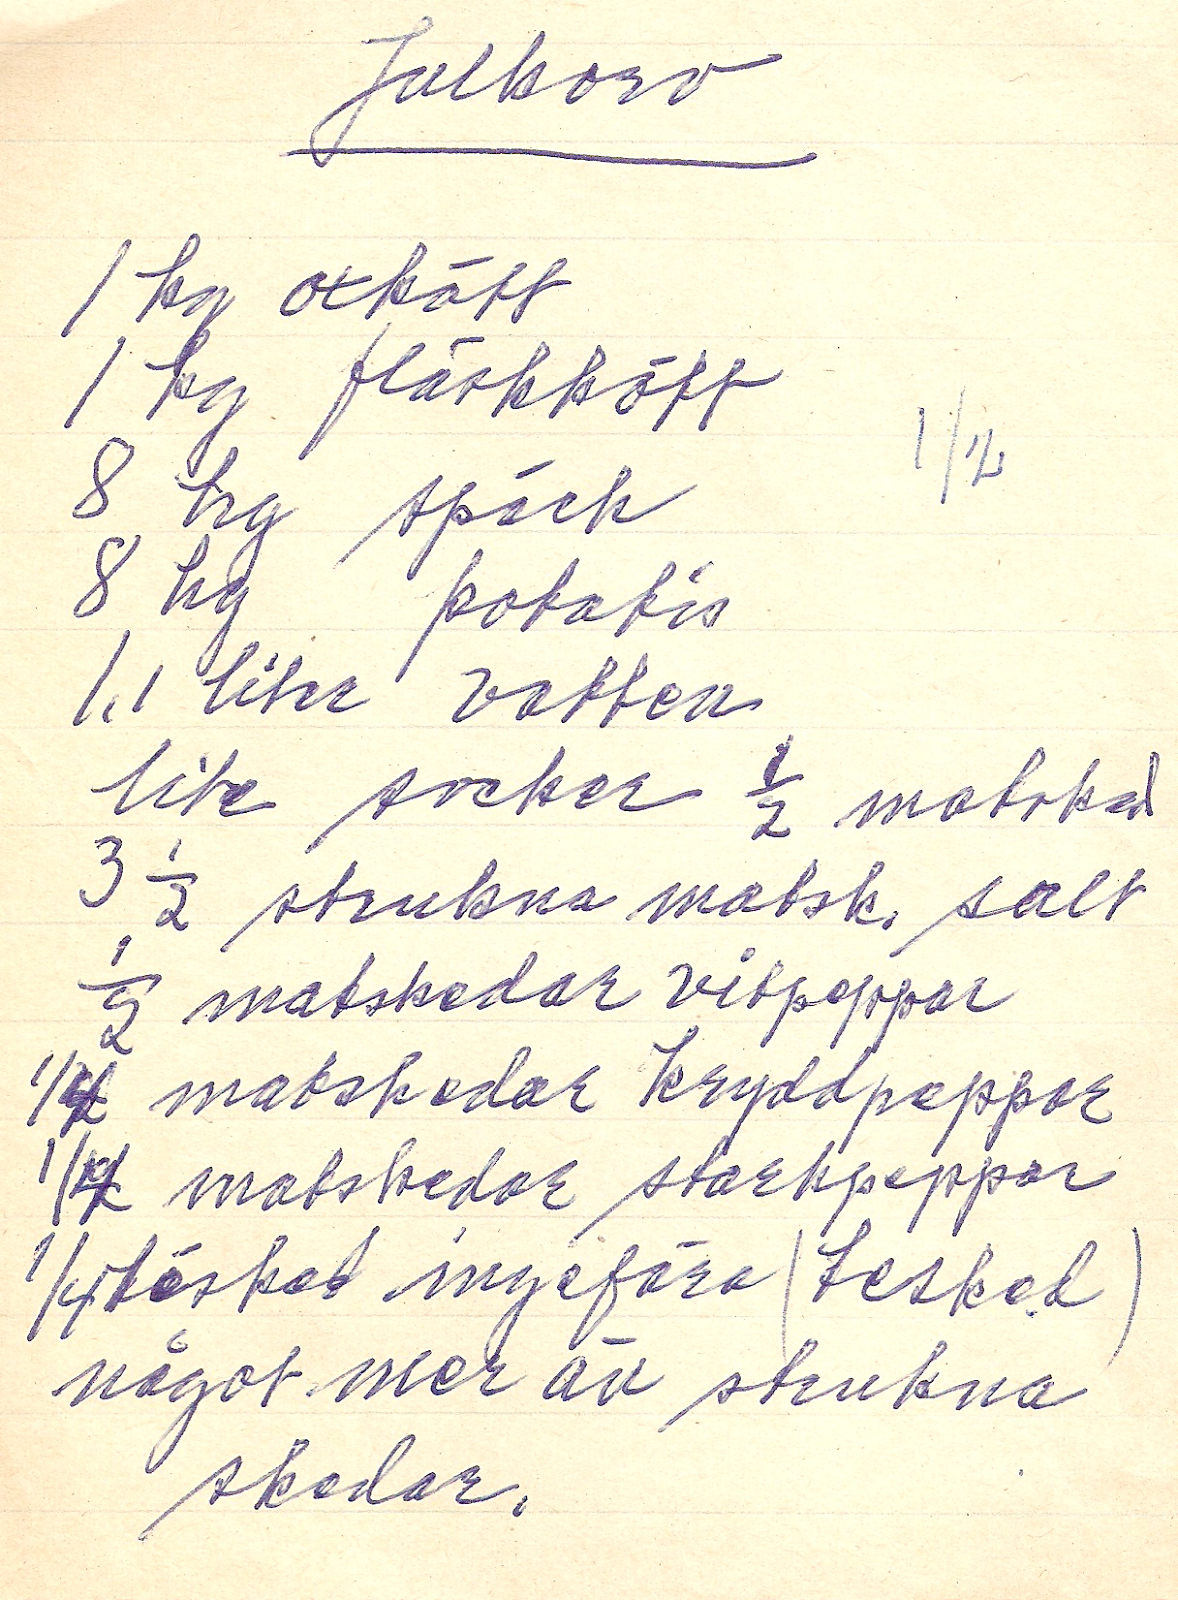 Julkorv
1 kg oxkött
1 kg fläskkött
1/2
8 hg späck
8 hg potatis
1,1 liter vatten
lite socker 1/2 matsked
3 1/2 strukna matsk. salt
1/2 matskedar vitpeppar
1/4 matskedar kryddpeppar
1/4 matskedar starkpeppar
1/4 tésked ingefära (tesked)
något mer än strukna
skedar.